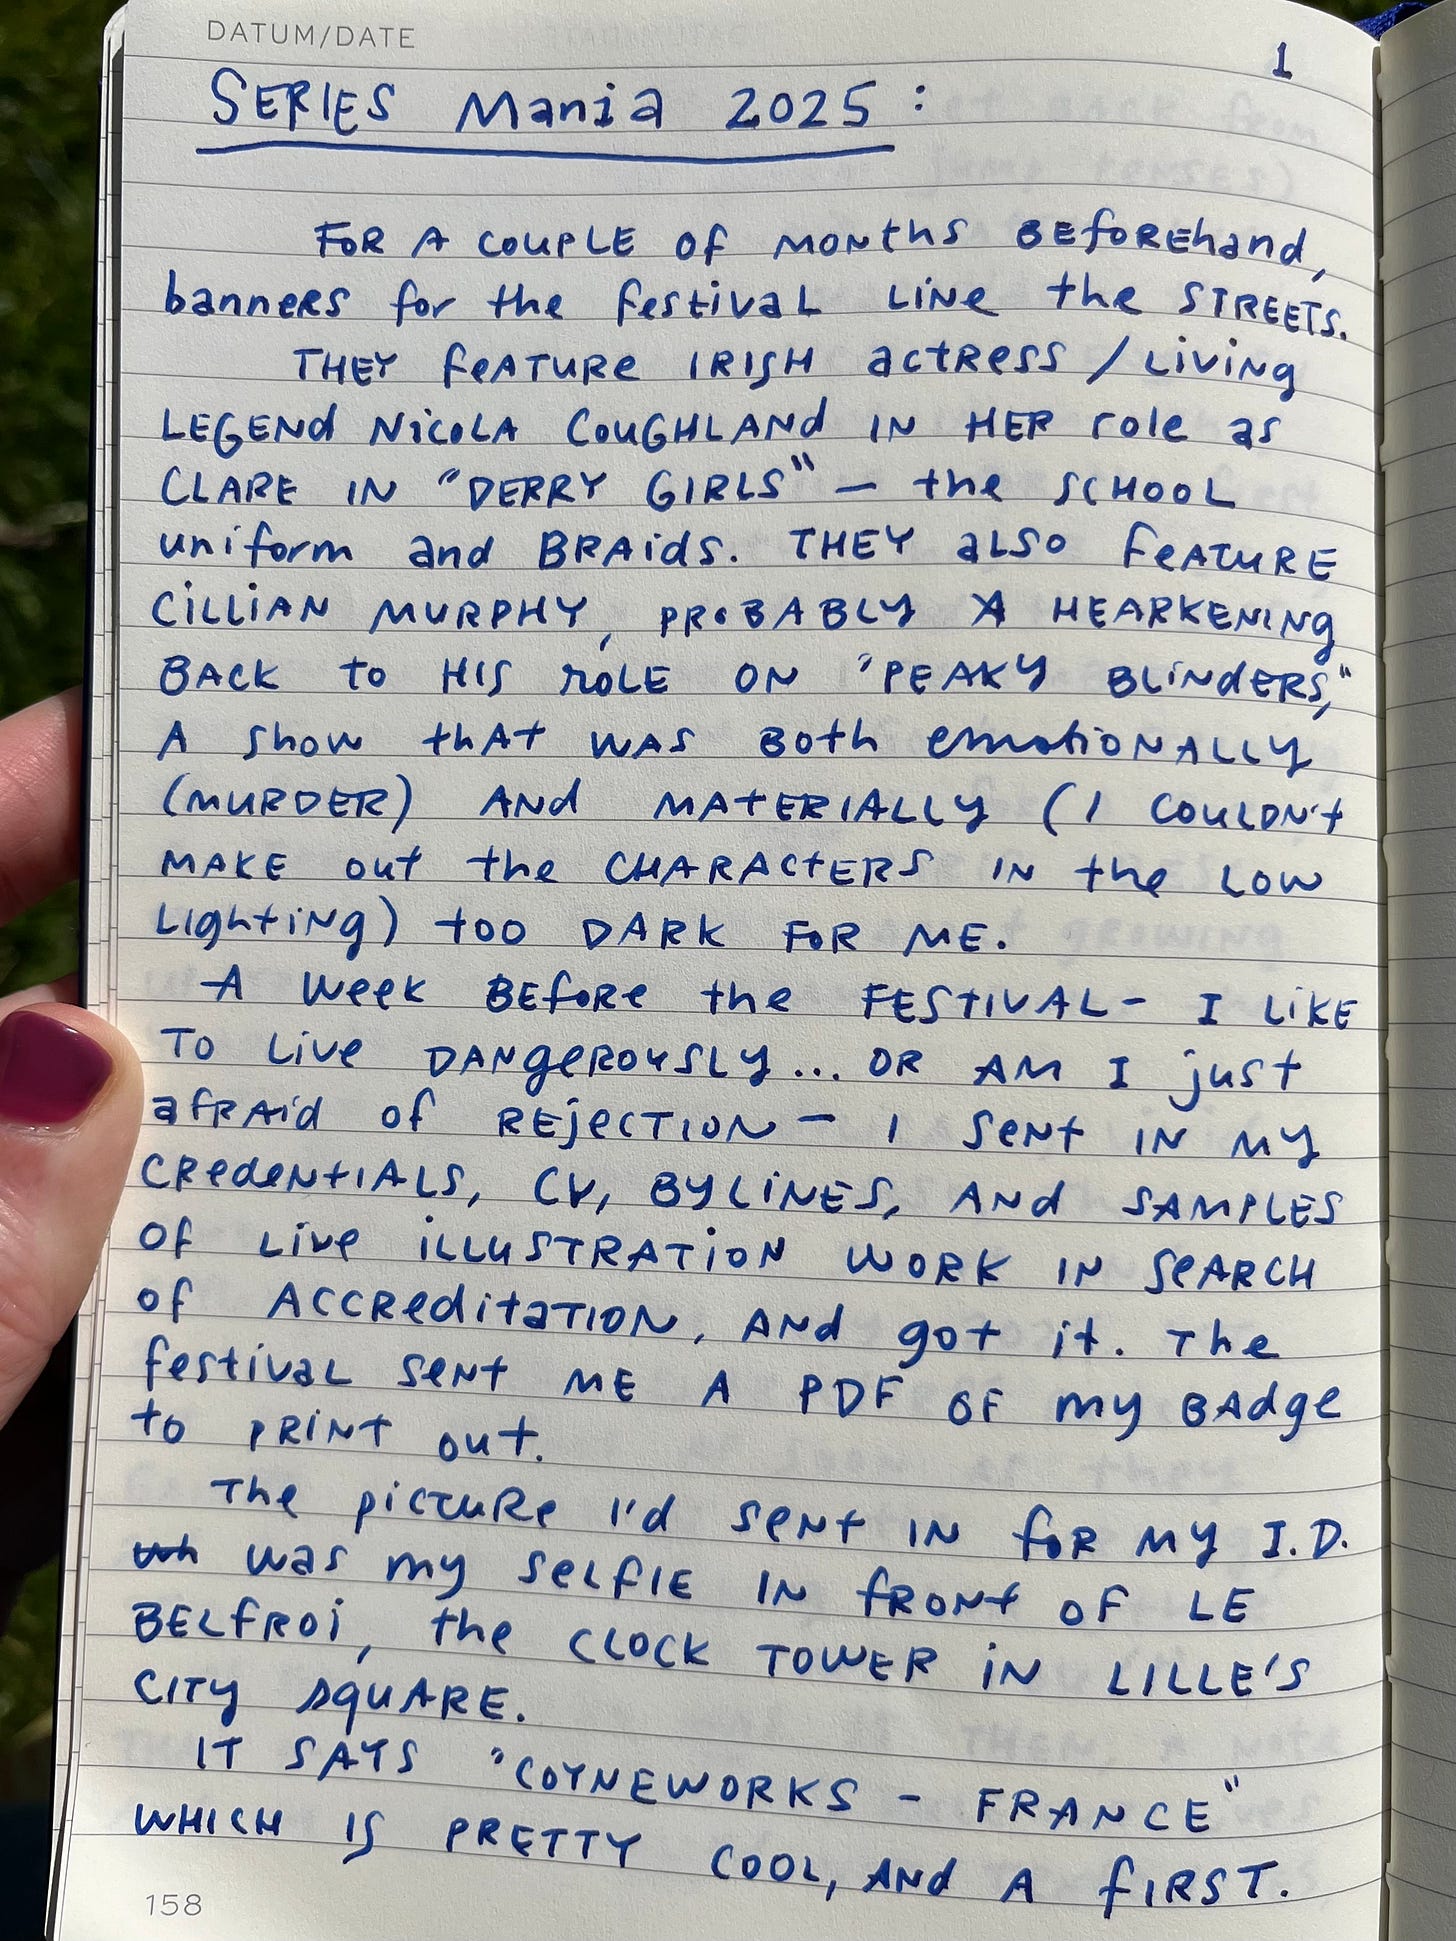 DATUM/DATE
1
SERIES Mania 2025:
FOR A COUPLE OF MONths BEfoREhand,
banners for the festival LINe the STREETS.
THEY feATURe IRISH actress / Living
LEGENd NicoLA COUGHLANd IN HER role as
CLARE IN "DERRY GIRLS" – the SCHOOL
uniform and BRAids. THEY aLSO feATURE
CILLIAN MURPHY, PROBABLY A HEARKENING
BACK to HIS roLE ON "PEAKY BLiNdERS,"
A show thAt WAS BOth emotioNALLY
(MURDER) ANd MAtERIALLY (I COULDN't
MAKE out the CHARACtERS IN the LOW
Lighting) too DARK FOR ME.
A Week BEfoRe the FESTIVAL – I LIKE
TO Live DANgeROUSLY... OR AM I just
afRAid of REjeCTION – I SeNt IN MY
CRedeNtIALS, CV, BYLINES, ANd SAMPLES
OF Live ILLUSTRATiON WORK IN SeARCH
of ACCReditaTION, ANd got it. The
festivaL seNt ME A PDF OF my BAdge
to PRINT out.
The picTuRe I'd seNt IN foR MY I.D.
wh was my seLfIE IN fRONt OF LE
BELfROi, the CLOCK TOWER iN LILLE'S
CITY squARE.
IT SAYS "COYNEWORKS – FRANCE"
WHICH IS PRETTY COOL, ANd A fIRST.
158